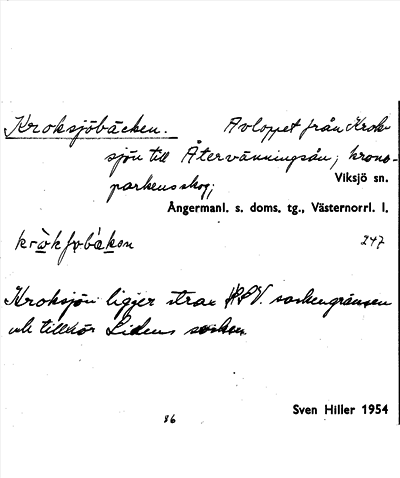 Kroksjöbäcken. Avloppet från Krok-
sjön till Återvänningsån; krono-
parkens skog;
Viksjö sn.
Ångermanl. s. doms. tg., Västernorrl. l.
247
Kroksjön ligger strax V. sockengränsen
och tillhör Lidens socken.
Sven Hiller 1954
86